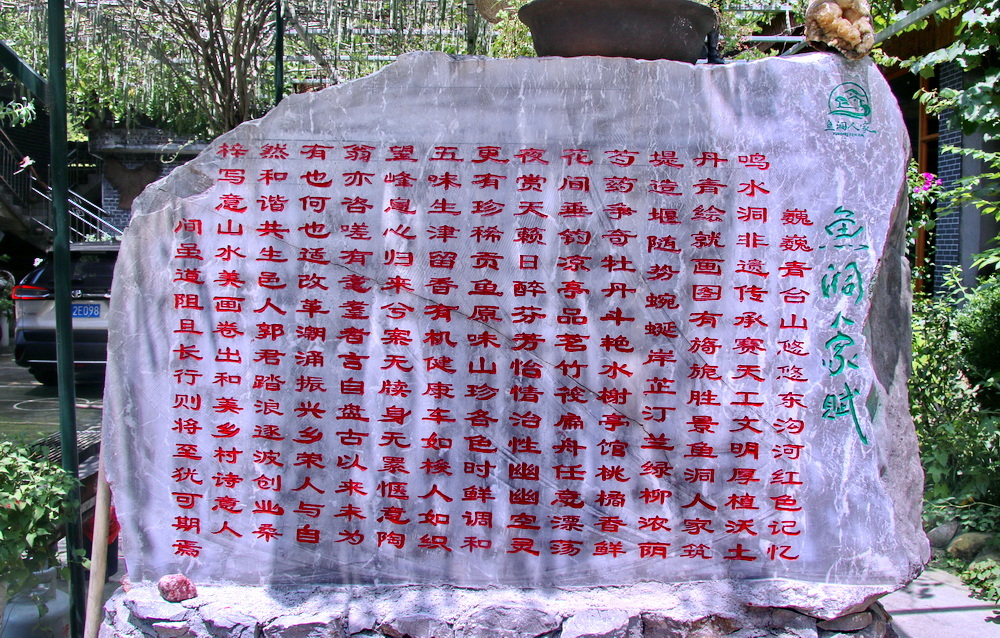 鱼洞人家
鱼洞人家赋
巍巍青台山悠悠东沟河红色记忆
鸣水洞非遗传承赛天工文明厚植沃土
丹青绘就画图有旖旎胜景鱼洞人家筑
堤造堰随势蜿蜒岸芷汀兰绿柳浓荫
芍药争奇牡丹斗艳水榭亭馆桃橘香鲜
花间垂钓凉亭品茗竹筏扁舟任意漂荡
夜赏天籁日醉芬芳怡情冶性幽幽空灵
更有珍稀贡鱼原味山珍各色时鲜调和
五味生津留香有机健康车如梭人如织
望峰凰心归来兮案无牍身无累惬意陶
翁亦咨嗟有耄耋者言自盘古以来未为
有也何也适改革潮涌振兴乡荣人与自
然和谐共生邑人郭君踏浪逐波创业桑
梓写意山水美画卷出和美乡村诗意人
间虽道阻且长行则将至犹可期焉
2E098